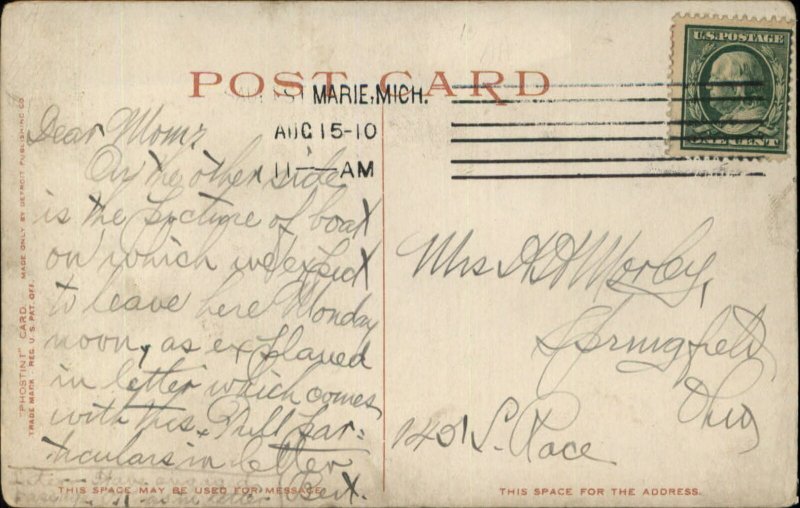 POST CARD
MARIE, MICH.
AUG 15-10
11—AM
U.S. POSTAGE
ONE CENT
Dear Mom;
On the other side
is the picture of boat
on which we expect
to leave here Monday
noon, as explained
in letter which comes
with this. Full par-
ticulars in letter
Bert.
Mrs A H Morley,
Springfield
Ohio
1451 S. Race
"PHOSTINT" CARD MADE ONLY BY DETROIT PUBLISHING CO.
TRADE MARK REG. U.S. PAT. OFF.
THIS SPACE MAY BE USED FOR MESSAGE
THIS SPACE FOR THE ADDRESS.